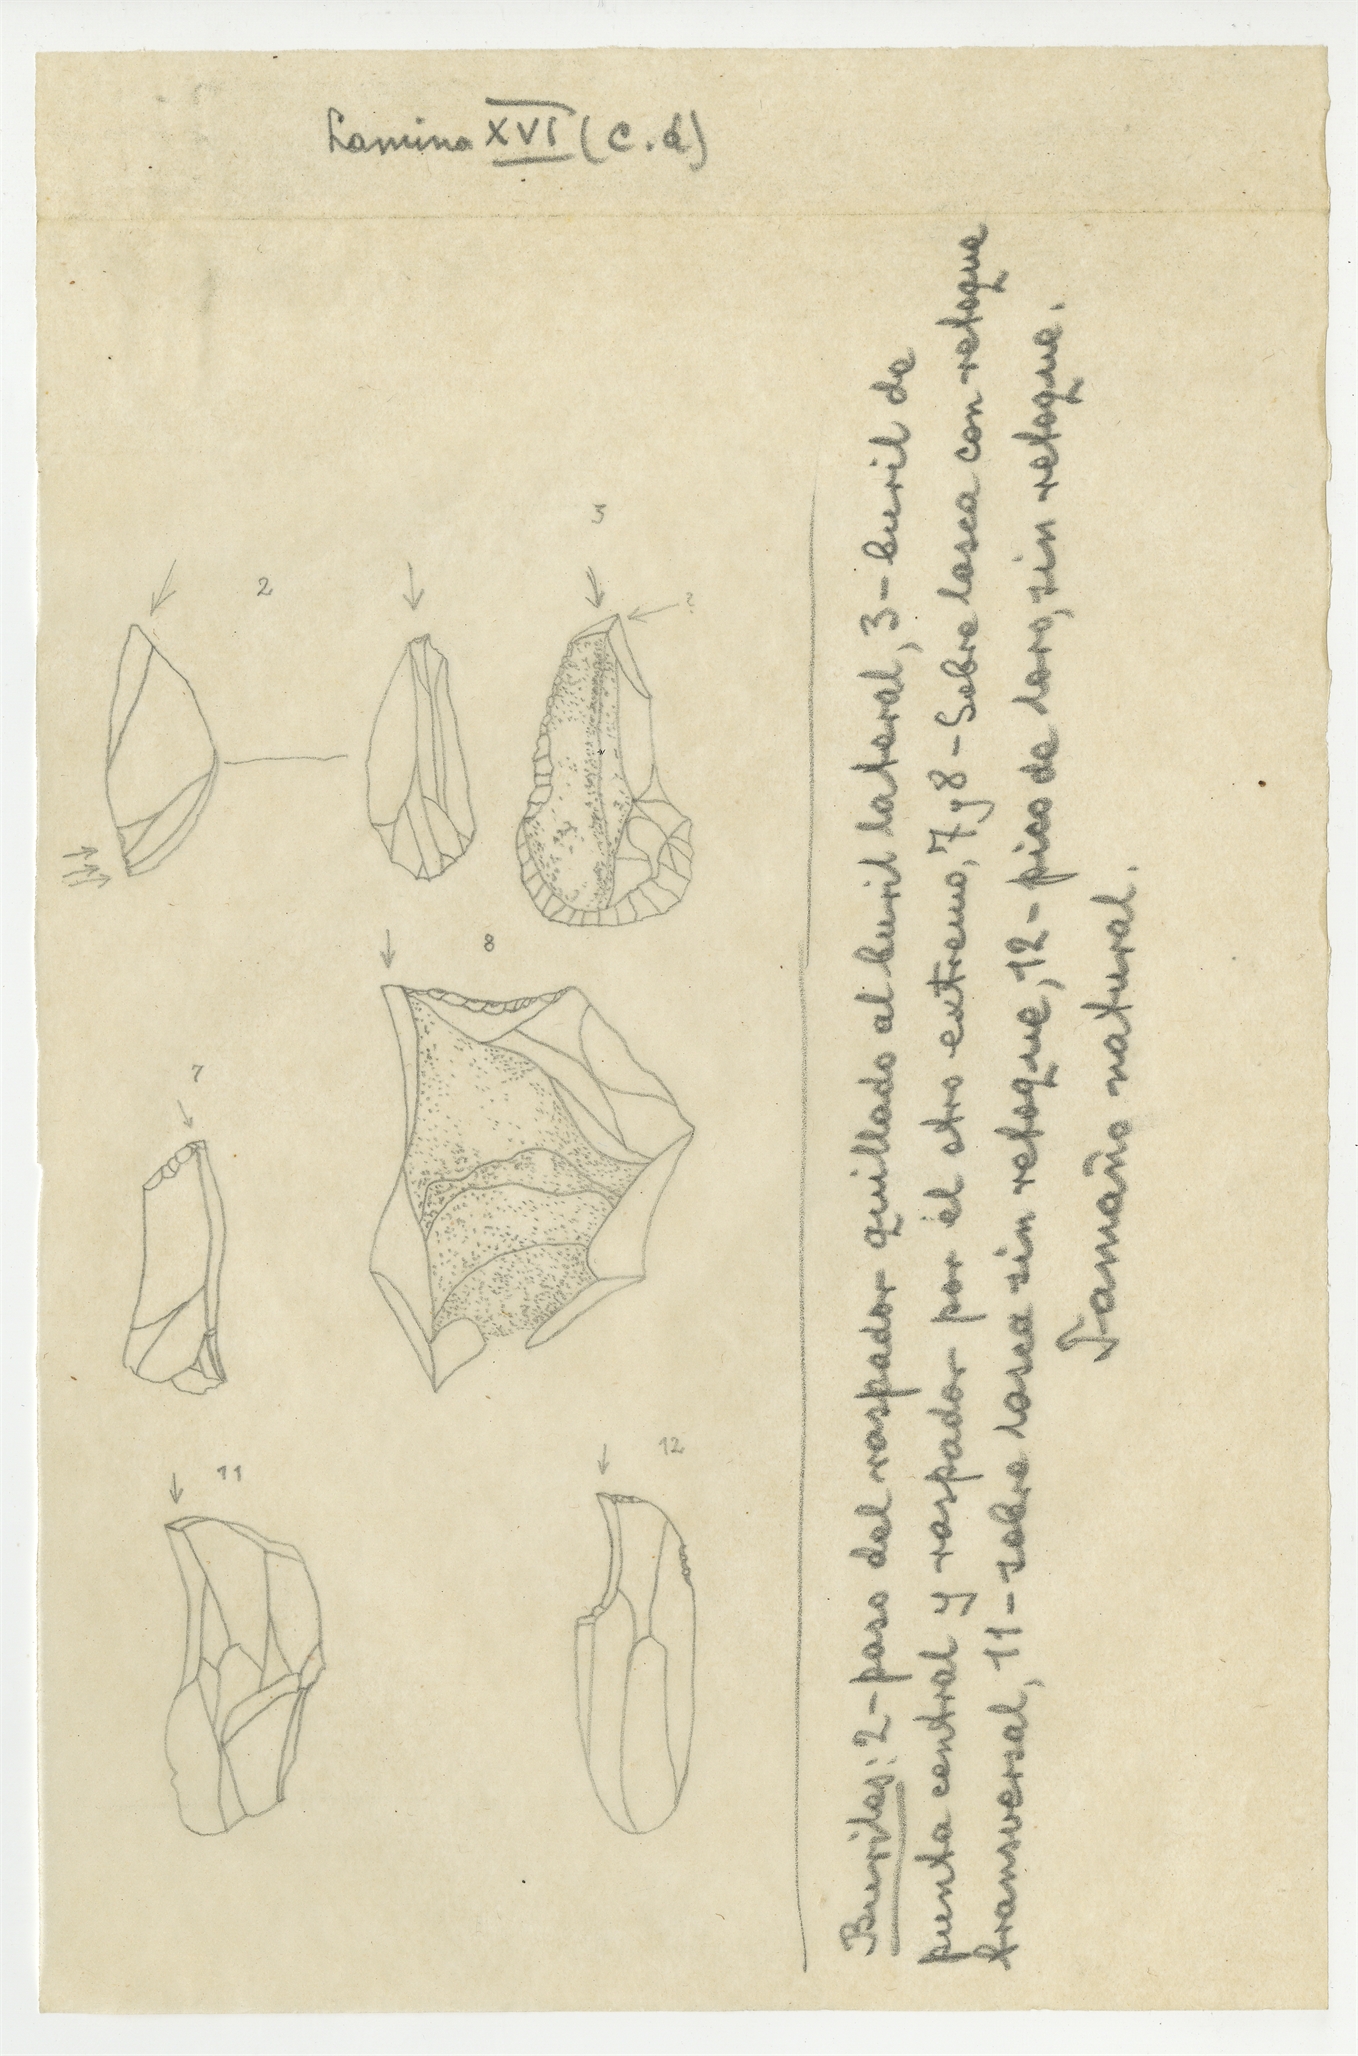 Lamina XVI (c.d)
2
3
?
8
7
11
12
Buriles: 2 - paso del raspador quillado al buril lateral, 3 - buril de
punta central y raspador por el otro extremo, 7 y 8 - Sobre lasca con retoque
transversal, 11 - sobre lasca sin retoque, 12 - pico de loro, sin retoque.
Tamaño natural.